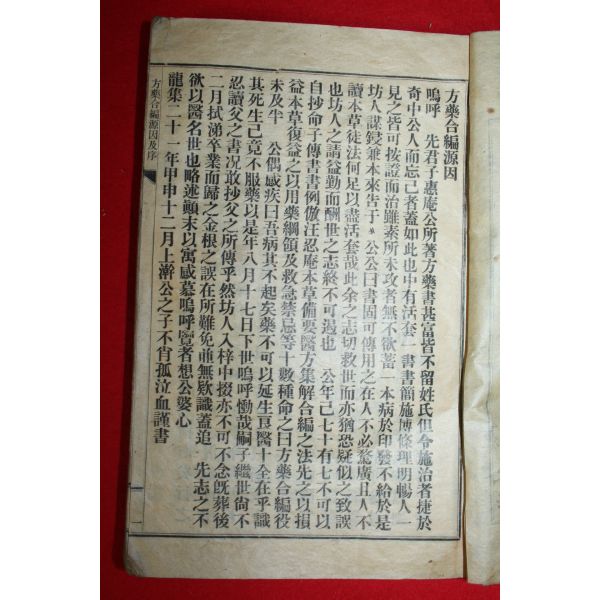 方藥合編源因
嗚呼 先君子惠庵公所著方藥書甚富皆不留姓氏但令施治者捷於
奇中公人而忘己者蓋如此也中有活套一書書簡施博條理明暢人一
見之皆可按證而治雖素所未攻者無不欲蓄 本病於印發不給於是
坊人謀鋟兼本來告于 公公曰書固可傳用之在人不必驚廣且人不
讀本草徒法何足以盡活套哉此余之志切救世而亦猶恐疑似之致誤
也坊人之請益勤而酬世之志終不可遏也 公年已七十有七不可以
自抄命子傳書書例倣汪忍庵本草備要醫方集解合編之法先之以損
益本草復益之以用藥綱領及救急禁忌等十數種命之曰方藥合編役
未及半 公偶感疾曰吾病其不起矣藥不可以延生良醫十全在乎識
其死生己竟不服藥以是年八月十七日下世嗚呼慟哉嗣子繼世尙不
忍讀父之書况敢抄父之所傳乎然坊人入梓中掇亦不可不念旣葬後
二月拭涕卒業而歸之金根之誤在所難免並無欵識蓋追 先志之不
欲以醫名世也略述顚末以寓感慕嗚呼覽者想公婆心
龍集二十一年甲申十二月上澣公之子不肖孤泣血謹書
方藥合編源因及序
一